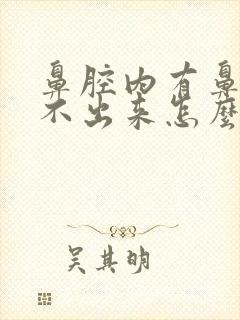 鼻腔内有鼻
不出来怎麼
吴其明